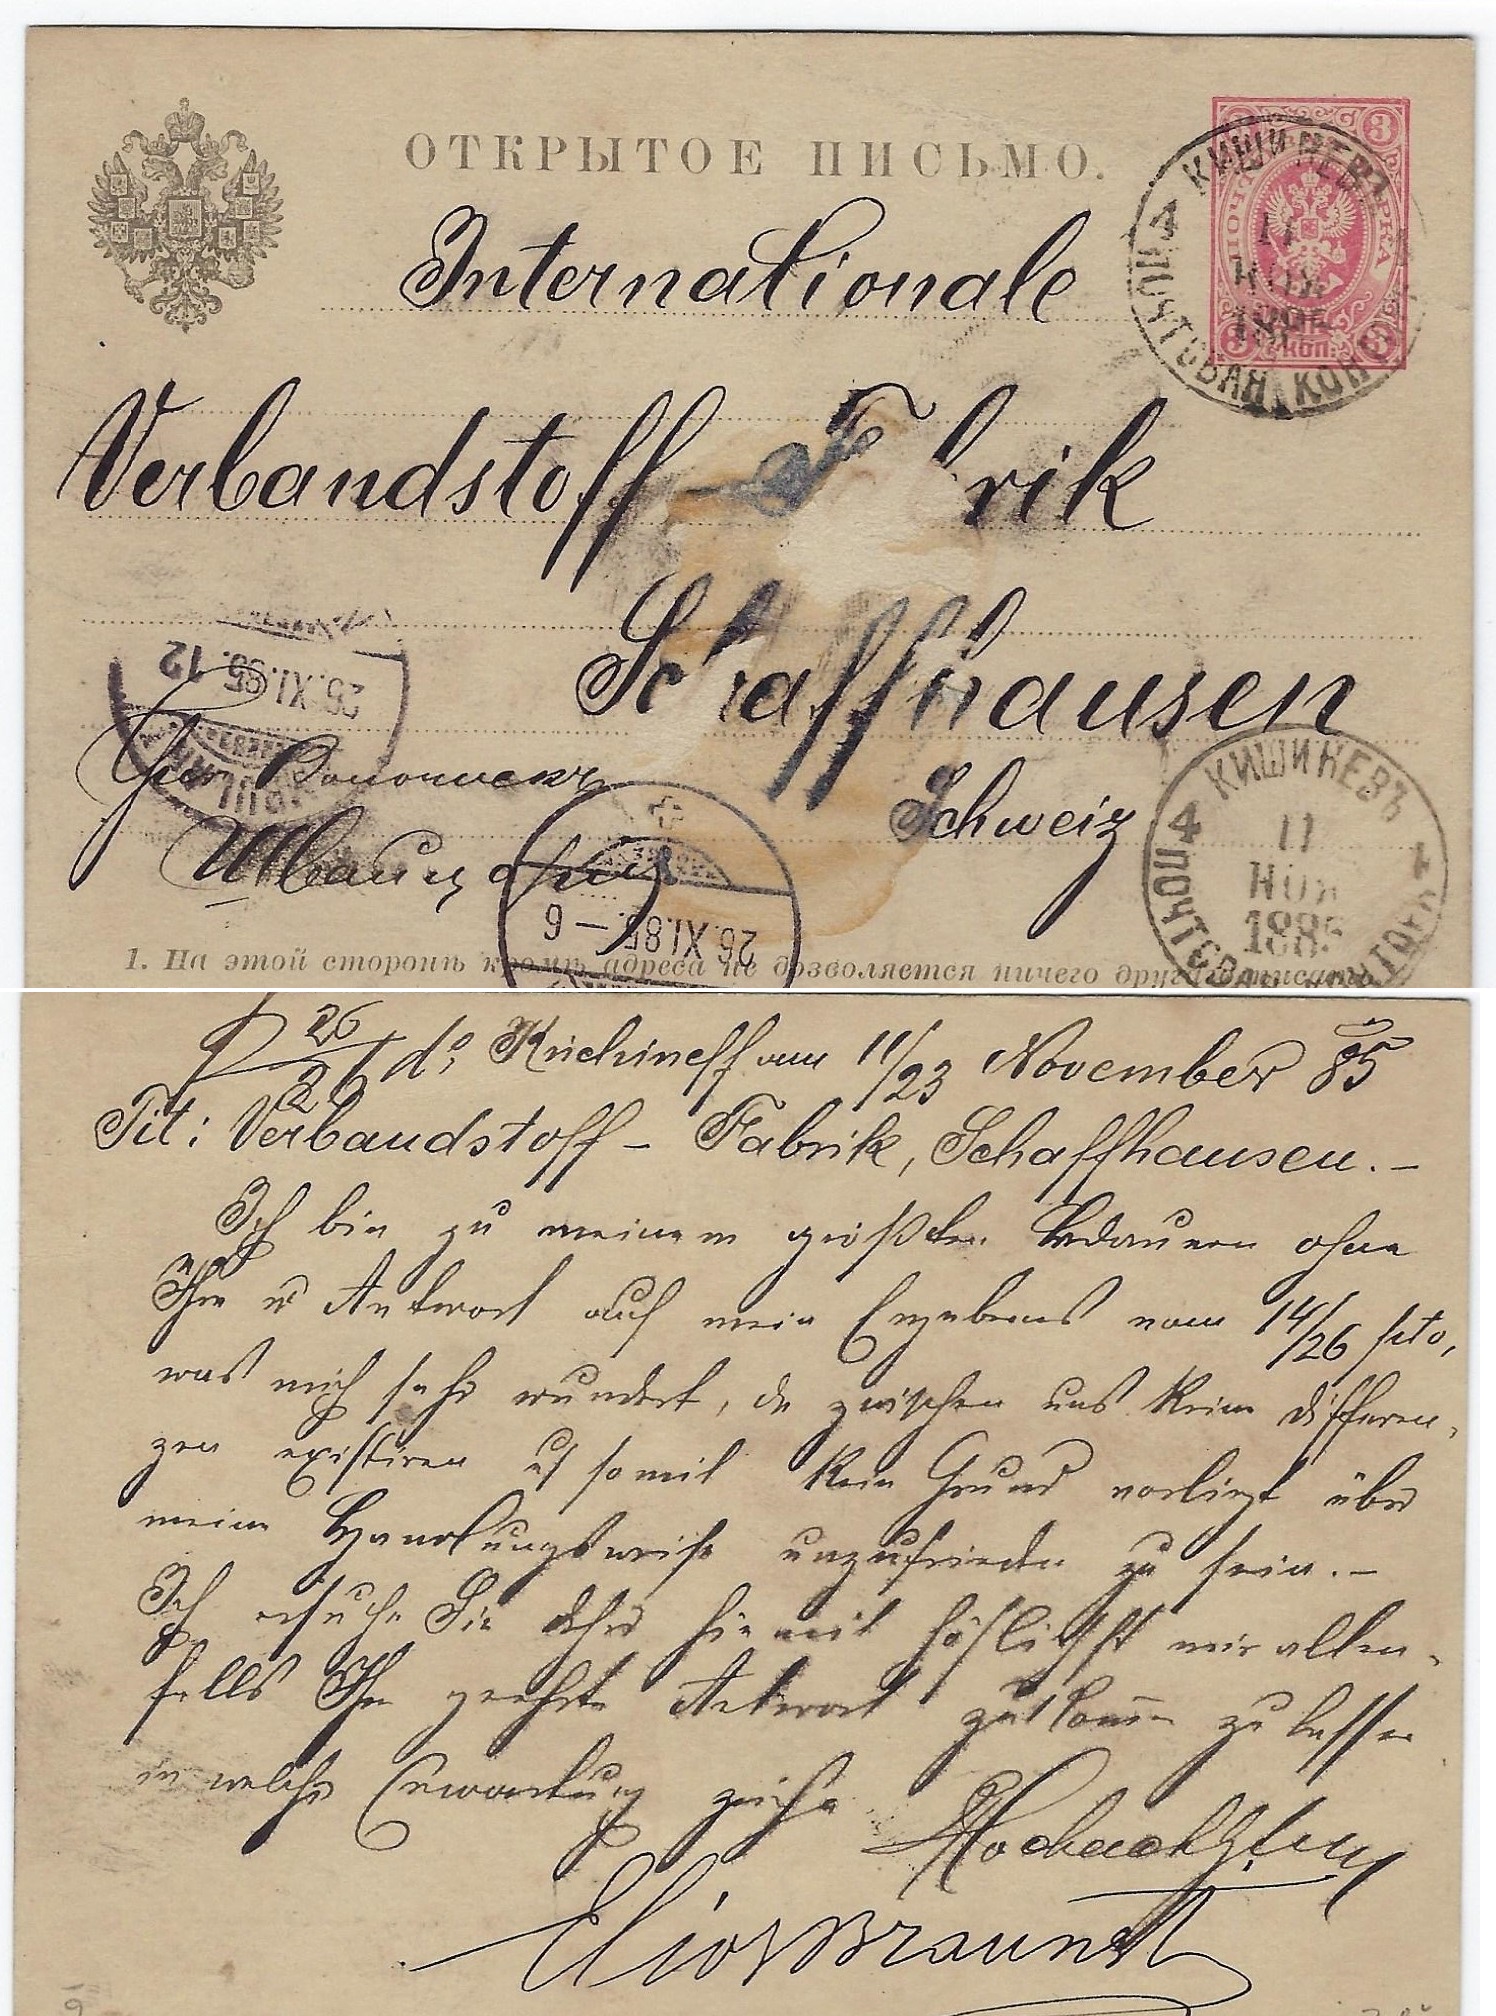 ОТКРЫТОЕ ПИСЬМО.
3
ПОЧТ МАРКА
3 КОП. 3
КИШИНЕВЪ
4
11
НОЯ
1885
ПОЧТОВАЯ КОНТОРА
Internationale
Verbandstoff F rik
Schaffhausen
Schweiz
Швейцарія
26.XI.85.12
26.XI.85.–6
КИШИНЕВЪ
4 4
11
НОЯ
1885
ПОЧТОВАЯ КОНТОРА
1. На этой сторонѣ кромѣ адреса не дозволяется ничего другаго писать.
26
d⁰; Kischineff am 11/23 November 85
Tit: Verbandstoff – Fabrik, Schaffhausen. –
Ich bin zu meinem größten Bedauern ohne
Ihre Antwort auf mein Ergebenes vom 14/26
was mich sehr wundert, da zwischen uns keine Differen-
zen existiren u somit kein Grund vorliegt über
meine Handlungsweise unzufrieden zu sein. –
Ich ersuche Sie daher hiermit höflichst mir allen-
falls Ihre geehrte Antwort zukommen zu lassen
in welcher Erwartung zeichne
Hochachtung